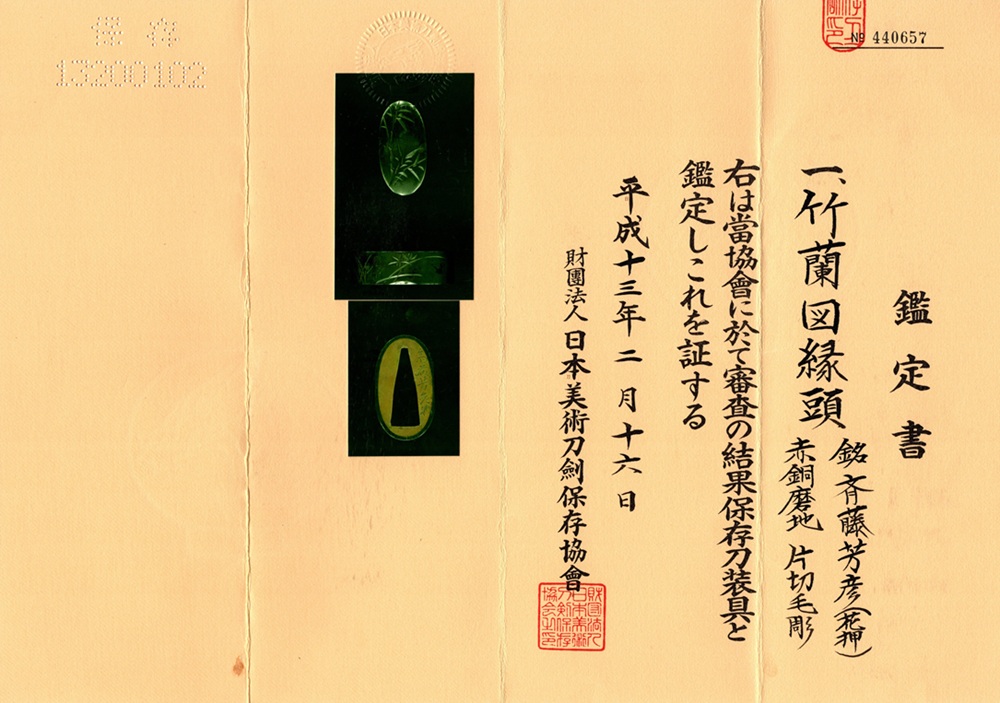 № 440657
鑑定書
一、竹蘭図縁頭
銘 斉藤芳彦(花押)
赤銅磨地 片切毛彫
右は當協會に於て審査の結果保存刀装具と
鑑定しこれを証する
平成十三年二月十六日
財團法人 日本美術刀劍保存協會
財団法人
日本美術
刀剣保存
協会之印
保存
13200102